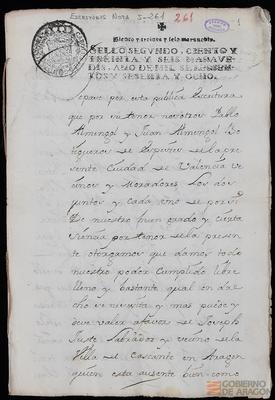 Escrituras Nota 5-261
261
1
Ciento y treinta y seis maravedis.
SELLO SEGVNDO, CIENTO Y
TREINTA Y SEIS MARAVE-
DIS, AÑO DE MIL SETECIEN-
TOS Y SESENTA Y OCHO.
Sepase por esta publica Escritura
que por su tenor nosotros Pablo
Almengol y Juan Almengol
de la pre
sente Ciudad de Valencia ve
cinos y Moradores Los dos
juntos y cada uno de por si
De nuestro buen grado y cierta
sciencia por tenor de la presen
te otorgamos que damos todo
nuestro poder Cumplido libre
lleno y bastante qual en dre
cho se necesita y mas puede y
deve valer a favor de Joseph
Juste Labrador y vecino de la
Villa de Cascante en Aragon
quien esta ausente bien como
GOBIERNO
DE ARAGON